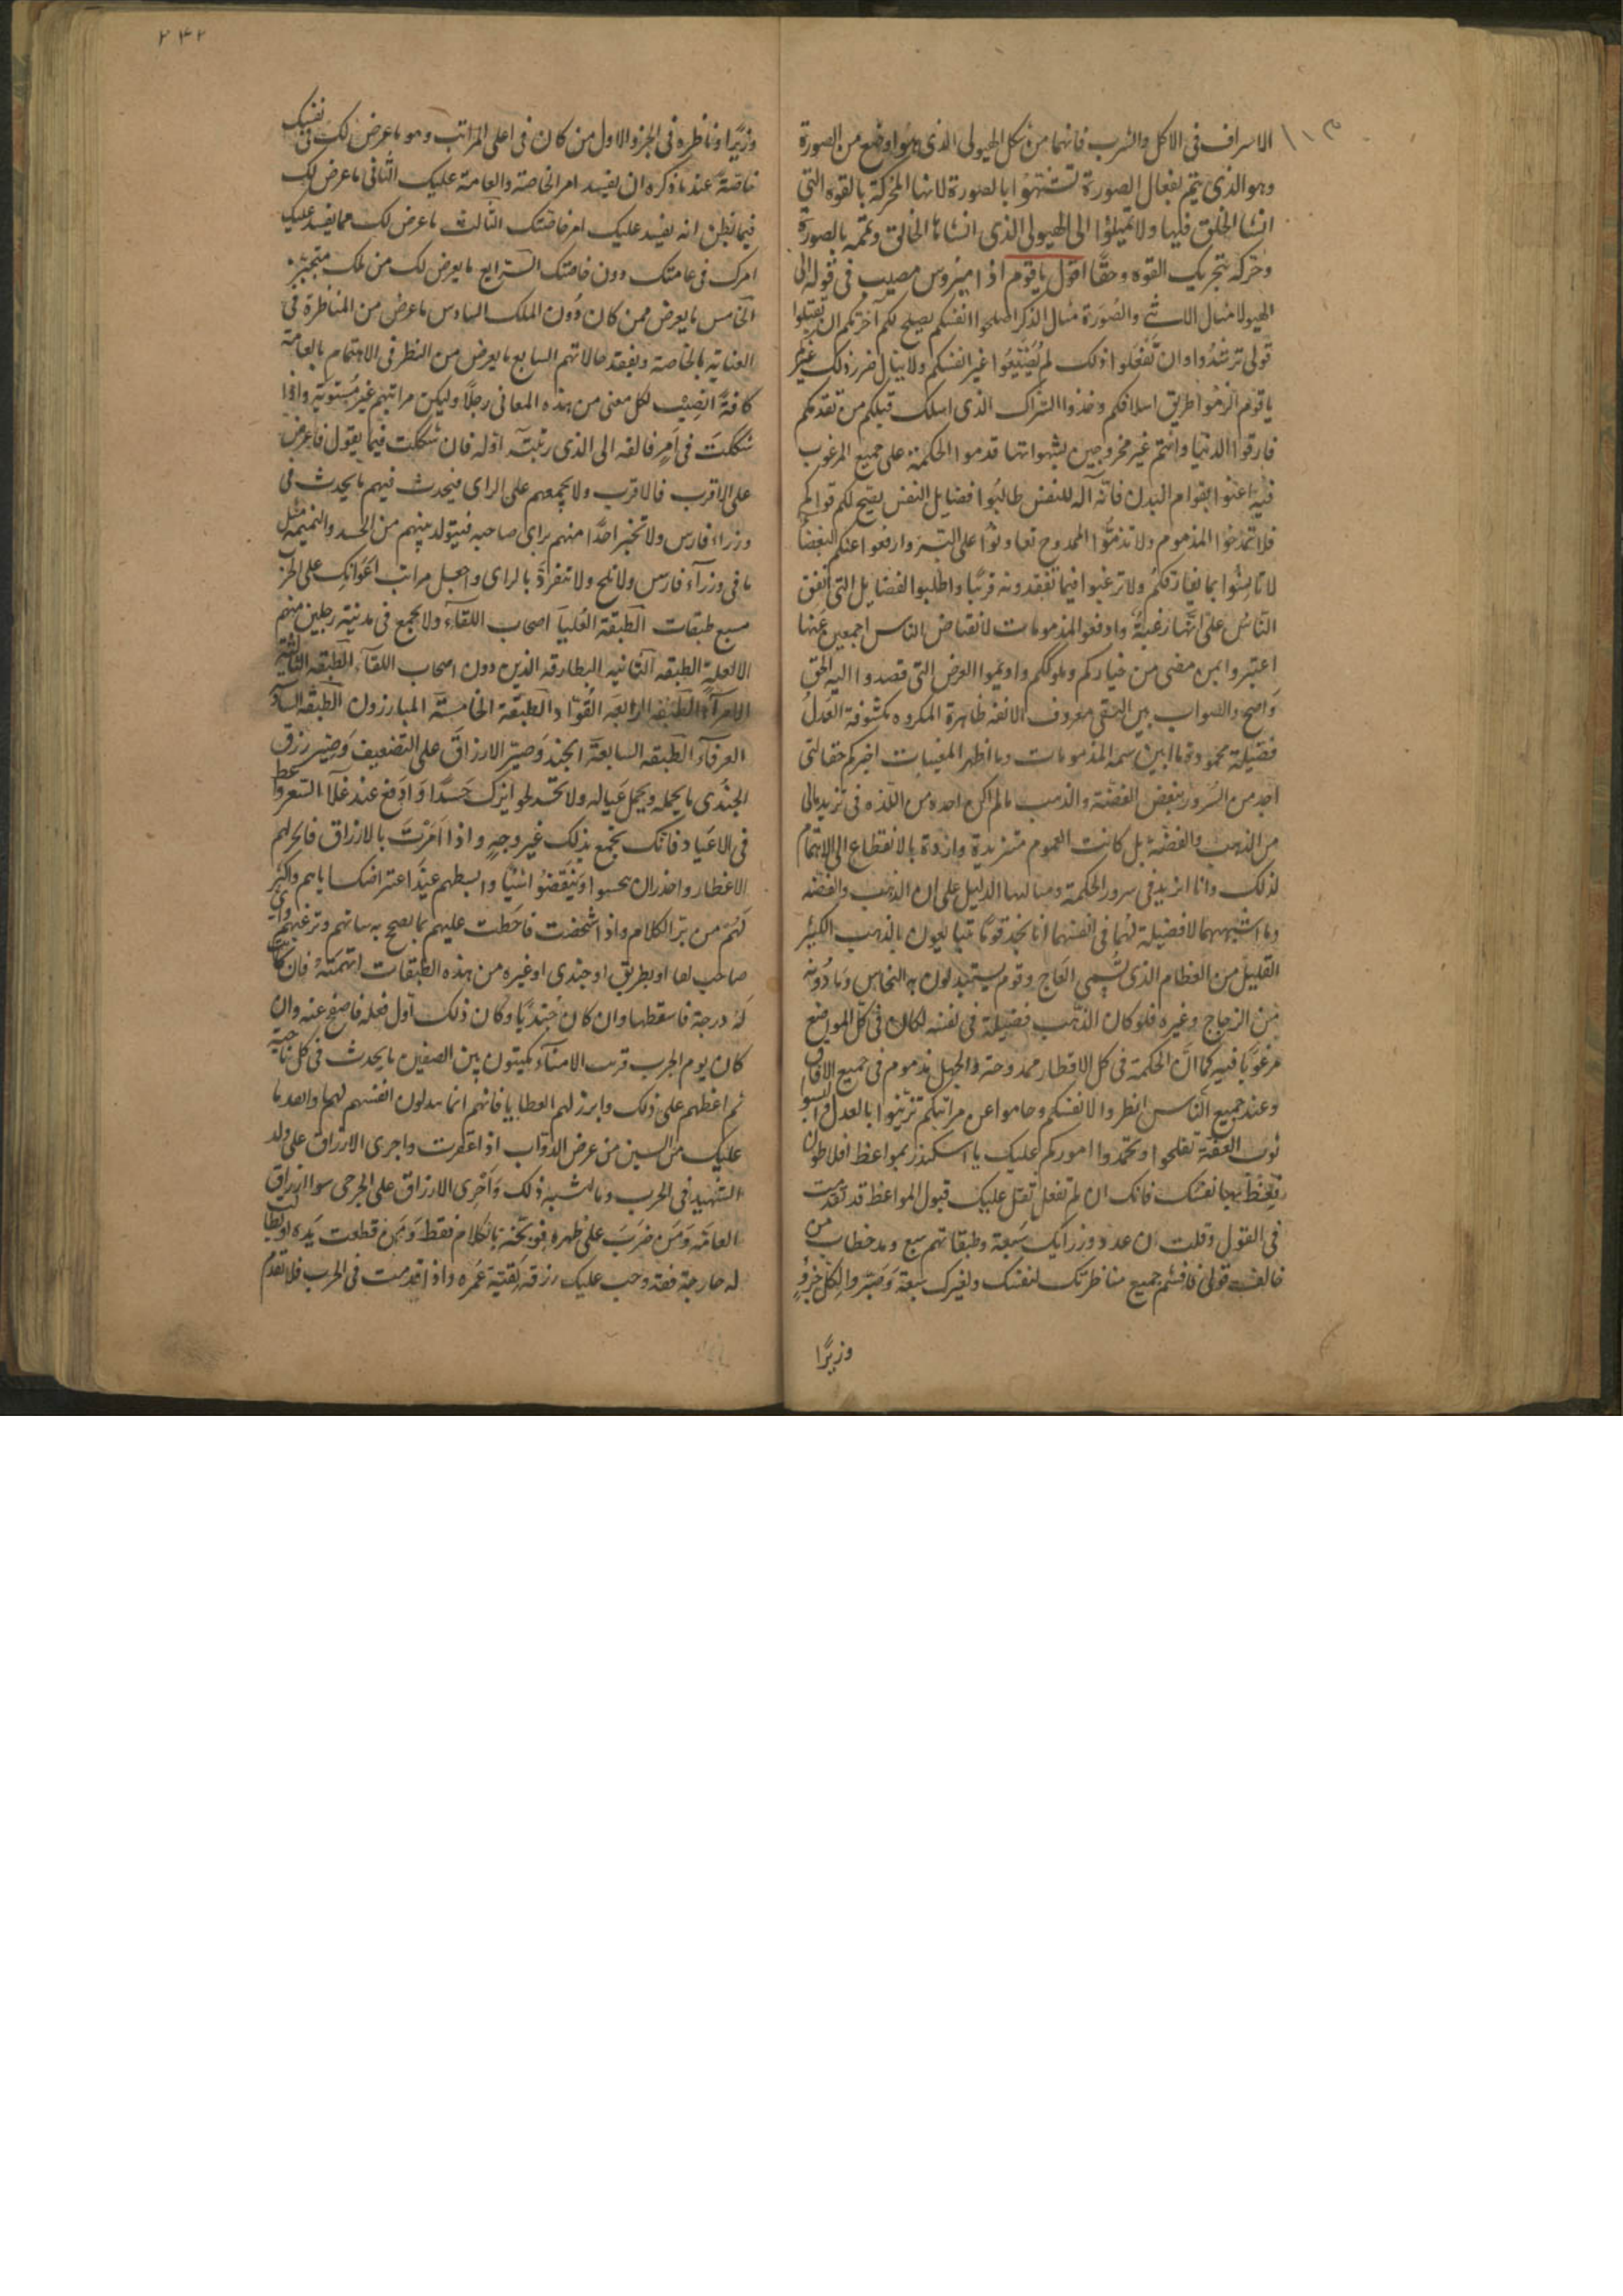 الاسراف فى الاكل والشرب فانهما من شكل الهيولى الذى هو اوضع من الصورة
وهو الذى يتم بفعال الصورة تشبهوا بالصورة لانها المحركة بالقوه التي
انشا الخلق فيها ولا تميلوا الى الهيولى الذى انشاها الخالق وتممه بالصورة
وحركه بتحريك القوه وحقا اقول ياقوم اذ اميروس مصيب فى قوله ان
الهيولا مثال الانثى والصورة مثال الذكر اصلحوا انفسكم يصلح لكم آخرتكم ان تقبلوا
قولى ترشدوا وان تفعلوا ذلك لم تضيعوا غير انفسكم ولا ينال ضرر ذلك غيركم
ياقوم الزموا طريق اسلافكم وخذوا الشراك الذى اهلك قبلكم من تقدمكم
فارقوا الدنيا وانتم غير مخروجين بشهواتها قدموا الحكمة على جميع المرغوب
فيه اعنوا بقوام البدن فانه آلة للنفس طالبوا فضايل النفس يصح لكم قوامكم
فلا تمدحوا المذموم ولا تذموا الممدوح تعاونوا على البر وارفعوا عنكم البغضا
لا تانسوا بما يفارقكم ولا ترغبوا فيما تفقدونه قريبا واطلبوا الفضايل التى اتفق
الناس على انها رغبة وادفعوا المذمومات لانقباض الناس اجمعين عنها
اعتبروا بمن مضى من خياركم وملوككم واديموا الغرض التى قصدوا اليه الحق
واضح والصواب بين النقى معروف الانفه ظاهرة المكروه مكشوفة العدل
فضيلة محمودة ما ابين سمة المذمومات وما اظهر المغيبات اخبركم حقا انى
اجد من السرور ببغض الفضة والذهب مالم اكن اجده من اللذه فى تزيد مالى
من الذهب والفضة بل كانت الغموم متزيدة وارادة بالانقطاع الى الاهتمام
لذلك وانا ازيد فى سرور الحكمة ومنالها الدليل على ان الذهب والفضه
وما اشبههما لا فضيلة لهما فى انفسهما انا نجد قوما يتبايعون بالذهب الكثير
القليل من العظام الذى تسمى العاج وقوم يستبدلون به النحاس وما دونه
من الزجاج وغيره فلو كان الذهب فضيلة فى نفسه لكان فى كل المواضع
مرغوبا فيه كما ان الحكمة فى كل الاقطار ممدوحة والجهل مذموم فى جميع الافاق
وعند جميع الناس انظروا لانفسكم وحاموا عن مراتبكم تزينوا بالعدل والبسوا
ثوب العفة تفلحوا وتحمدوا اموركم عليك يا اسكندر بمواعظ افلاطون
فعظ بها نفسك فانك ان لم تفعل ثقل عليك قبول المواعظ قد تقدمت
فى القول وقلت ان عدد وزرايك سبعة وطبقاتهم سبع وبدخطاب من
خالف قولى فاقسم جميع مناظرتك لنفسك ولغيرك سبعة وصير والكل جزو
وزيرا
٢٤٢
وزيرا وناظره فى الجزو الاول من كان فى اعلى المراتب وهو ما عرض لك فى نفسك
خاصة عند ما ذكره ان يفسد امر الخاصة والعامة عليك الثانى ما عرض لك
فيما تظن انه يفسد عليك امر خاصتك الثالث ما عرض لك مما يفسد عليك
امرك فى عامتك دون خاصتك الرابع ما يعرض لك من ملك متجبر
الخامس ما يعرض ممن كان دون الملك السادس ما عرض من المناظرة فى
العناية بالخاصة وتفقد حالاتهم السابع ما يعرض من النظر فى الاهتمام بالعامة
كافة انصب لكل معنى من هذه المعانى رجلا وليكن مراتبهم غير مستوية واذا
شككت فى امر فالقه الى الذى رتبته اوله فان شككت فيما يقول فاعرض
على الاقرب فالاقرب ولا يجمعهم على الراى فيحدث فيهم ما يحدث فى
وزراء فارس ولا تخبر احدا منهم براى صاحبه فيتولد بينهم من الحسد والنميمة مثل
ما فى وزراء فارس ولا تلح ولا تنفرد بالراى واجعل مراتب اعوانك على الحرب
سبع طبقات الطبقة العليا اصحاب اللقاء ولا يجمع فى مدينة رجلين منهم
الا لعلة الطبقه الثانيه البطارقه الذين دون اصحاب اللقاء الطبقه الثالثة
الامراء الطبقه الرابعه القواد الطبقة الخامسة المبارزون الطبقه السادسة
العرفاء الطبقه السابعة الجند وصير الارزاق على التضعيف وصير رزق
الجندى ما يحمله ويحمل عياله ولا تخد لجوايزك حدا وادفع عند غلاء السعر واعط
فى الاعياد فانك تجمع بذلك غير وجه واذا امرت بالارزاق فاجر لهم
الاعطا واحذر ان يحسوا وينقضوا شيا وابسطهم عند اعتراضك اياهم واكثر
لهم من بر الكلام واذا شخصت فاحطت عليهم بما يصح به سانهم وترغبهم واى
صاحب لقا او بطريق او جندى او غيره من هذه الطبقات اتهمته فان كانت
له درجة فاسقطها وان كان جنديا وكان ذلك اول فعله فاصفح عنه وان
كان يوم الحرب قرب الامناء يكبتون بين الصفين ما يحدث فى كل ناحية
ثم اعطهم على ذلك وابرز لهم العطايا فانهم انما يبدلون انفسهم لهما وابعد ما
عليك من السبى من عرض الدواب اذا عقرت واجرى الارزاق على ولد
الشهيد فى الحرب وما اشبه ذلك واجرى الارزاق على الجرحى سوا ارزاق
العامه ومن ضرب على ظهره فوبخه بالكلام فقط ومن قطعت يده او بطلت
له جارحة فقد وجب عليك رزقه بقية عمره واذا قدمت فى الحرب فلا تقدم